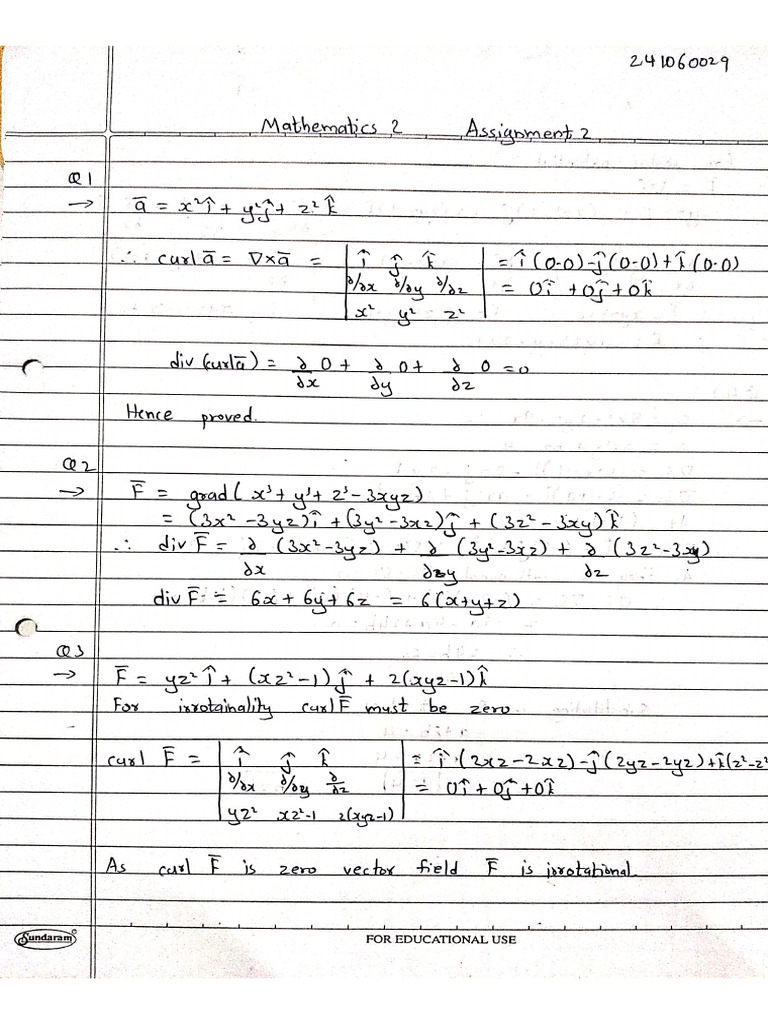 241060029
Mathematics 2 Assignment 2
Q1
→ a̅ = x²î + y²ĵ + z²k̂
∴ curl a̅ = ∇×a̅ = | î ĵ k̂ | = î(0-0) - ĵ(0-0) + k̂(0-0)
∂/∂x ∂/∂y ∂/∂z | = 0î + 0ĵ + 0k̂
x² y² z²
div (curl a̅) = ∂/∂x 0 + ∂/∂y 0 + ∂/∂z 0 = 0
Hence proved.
Q2
→ F̅ = grad( x³ + y³ + z³ - 3xyz)
= (3x² - 3yz)î + (3y² - 3xz)ĵ + (3z² - 3xy)k̂
∴ div F̅ = ∂/∂x (3x² - 3yz) + ∂/∂y (3y² - 3xz) + ∂/∂z (3z² - 3xy)
div F̅ = 6x + 6y + 6z = 6(x+y+z)
Q3
→ F̅ = yz²î + (xz²-1)ĵ + 2(xyz-1)k̂
For irrotainality curl F̅ must be zero
curl F̅ = | î ĵ k̂ | = î(2xz-2xz) - ĵ(2yz-2yz) + k̂(z²-z²
∂/∂x ∂/∂y ∂/∂z | = 0î + 0ĵ + 0k̂
yz² xz²-1 2(xyz-1)
As curl F̅ is zero vector field F̅ is irrotational.
Sundaram
FOR EDUCATIONAL USE